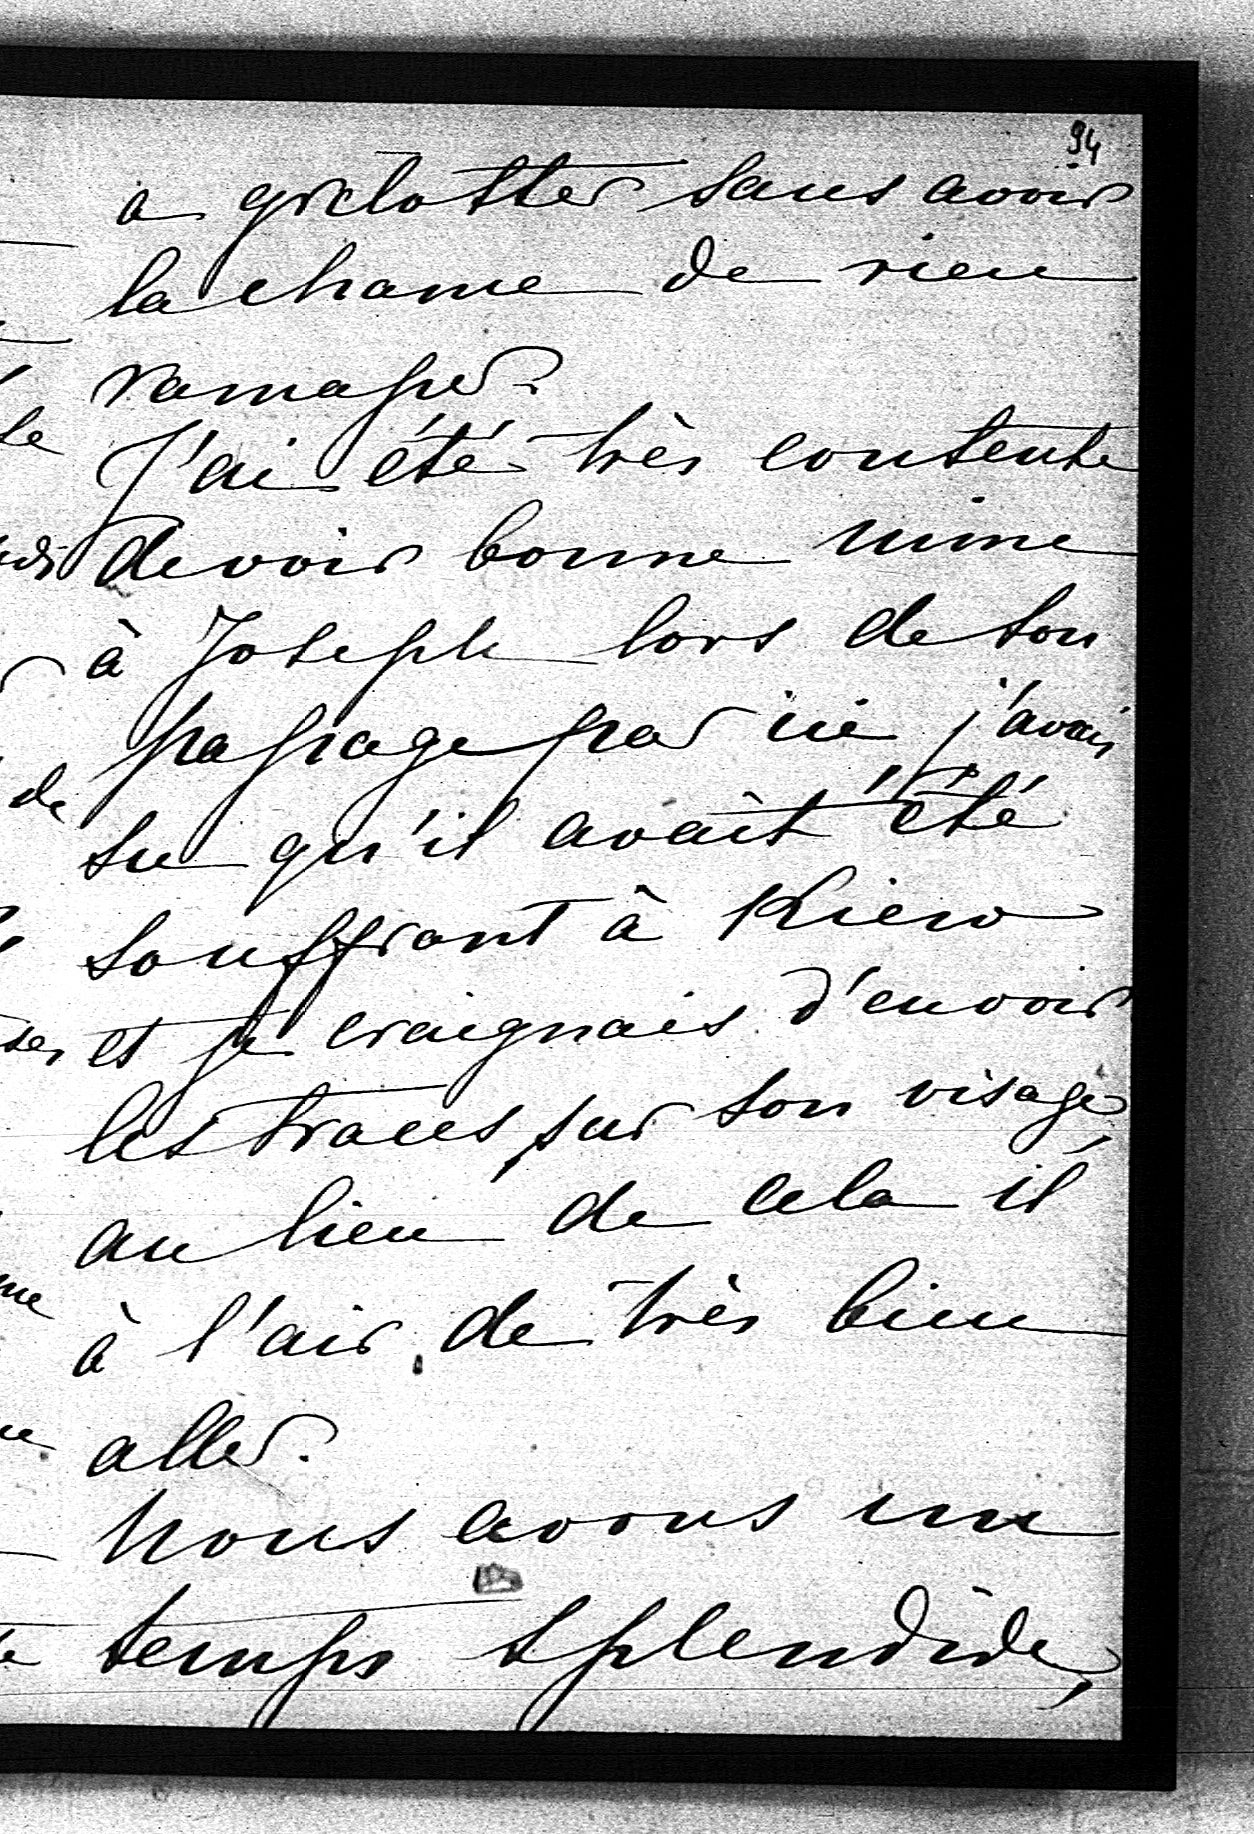 94
a grelotter sans avoir
la chance de rien
ramasser.
J'ai été très contente
de voir bonne mine
à Joseph lors de son
passage par ici j'avais
su qu'il avait été
souffrant à Kiew
et je craignais d'en voir
les traces sur son visage,
au lieu de cela il
à l'air de très bien
aller.
Nous avons un
temps splendide,